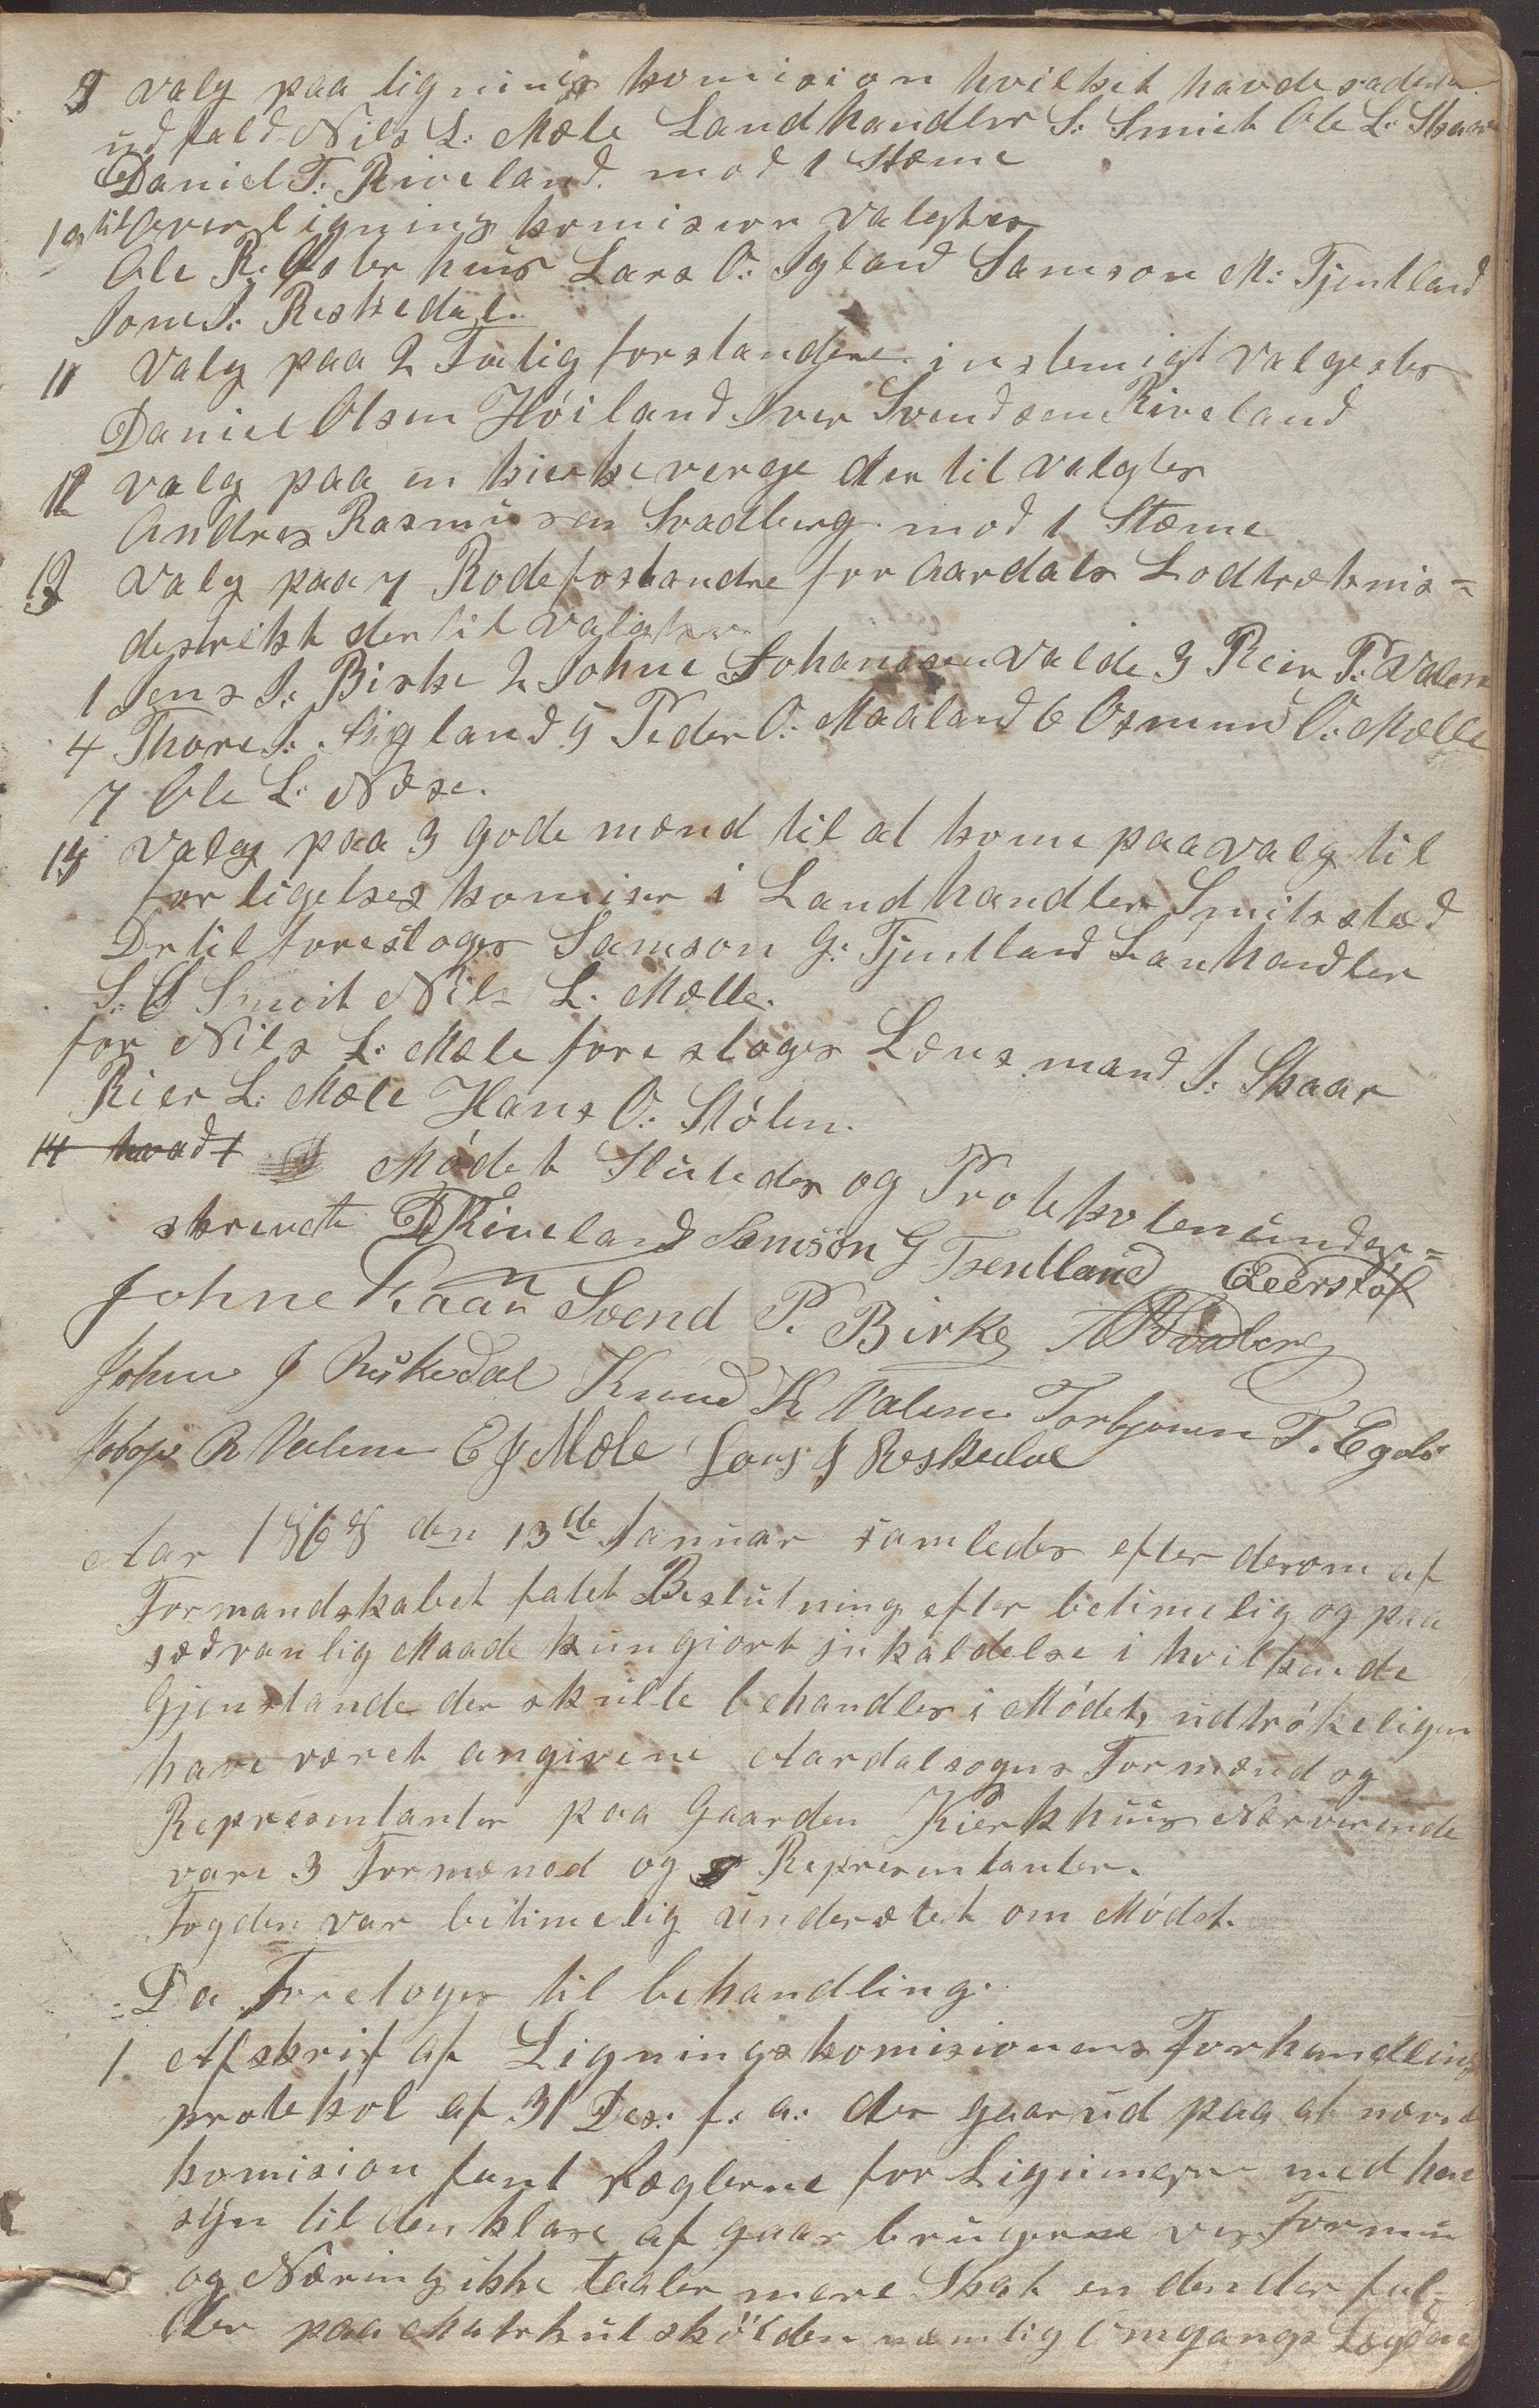 9 valg paa lignings komision hvilket havde sadent
udfald Nils L: Mæle Landhandler S: Smith Ole L: Skaar
Daniel T: Riveland. mod 1 Stæme
10 til Overligningskomision valgtes
Ole R: Østerhuus Lars O: Igland Samson M: Tjentland
Jone J: Reskedal.
11 Valg paa 2 Fatig forstandere instemigt valgestes
Daniel Olsen Höiland Iver Svendsen Riveland
12 valg paa en kierkeverge der til valgtes
Andres Rasmusen Svadberg mod 1 Stæme
13 Valg paa 7 Rodeforstandre for Aardals Lodtræknis=
destrikt der til valgtes
1 Jens J: Birke 2 Johne Johanesen Valde 3 Reir T: Valem
4 Thore J: Sigland 5 Peder O: Maaland 6 Osmund O: Mælle
7 Ole L: Næse.
14 Valg paa 3 gode mænd til at kome paa valg til
forligelses komiser i Landhandler Smits stæd
Dertil foresloges Samson G: Tjentland Lanhandler
S: S Smeit Nils L. Mælle.
for Nils L: Mæle foresloges Lænsmand J: Skaar
Rier L: Mæle Hans O: Stölen.
14 hvad 1 Mödet Sluttedes og Protokolen under=
skrevet D Riveland Samson G Tsentland
Johne Kaan Svend P. Birke A R Svadberg
Johne J Riskedal Knud K Valem Torbjoren T. Eg
R Valem E J Mæle Lars J Reskedal
Aar 1868 den 13de Januar samledes efter derom af
Formandskabet fatet Beslutning efter betimelig og paa
sædvanlig Maade kungiort inkaldelse i hvilken de
Gjenstande der skulle behandles i Mödet, udtrökeligen
have været angivene Aardalsogns Formænd og
Representanter paa Gaarden Kierkhuus Nærverende
vare 3 Formænd og 9 Represemtanter.
Fogden var betimelig underætet om Mödet.
Da Foretoges til behandling.
1 Afskrif af Ligningskomisionens Forhandlings
protokol af 31 Des: f: a: der gaar ud paa at nævnte
komision fant Reglerne for Ligningen med hen
syn til den klase af gaarbrugerne ves Formue
og Næring ikke taaler mere Skat en den der fal-
der paa Matrkulskölden næmlig Omgangs Lægden